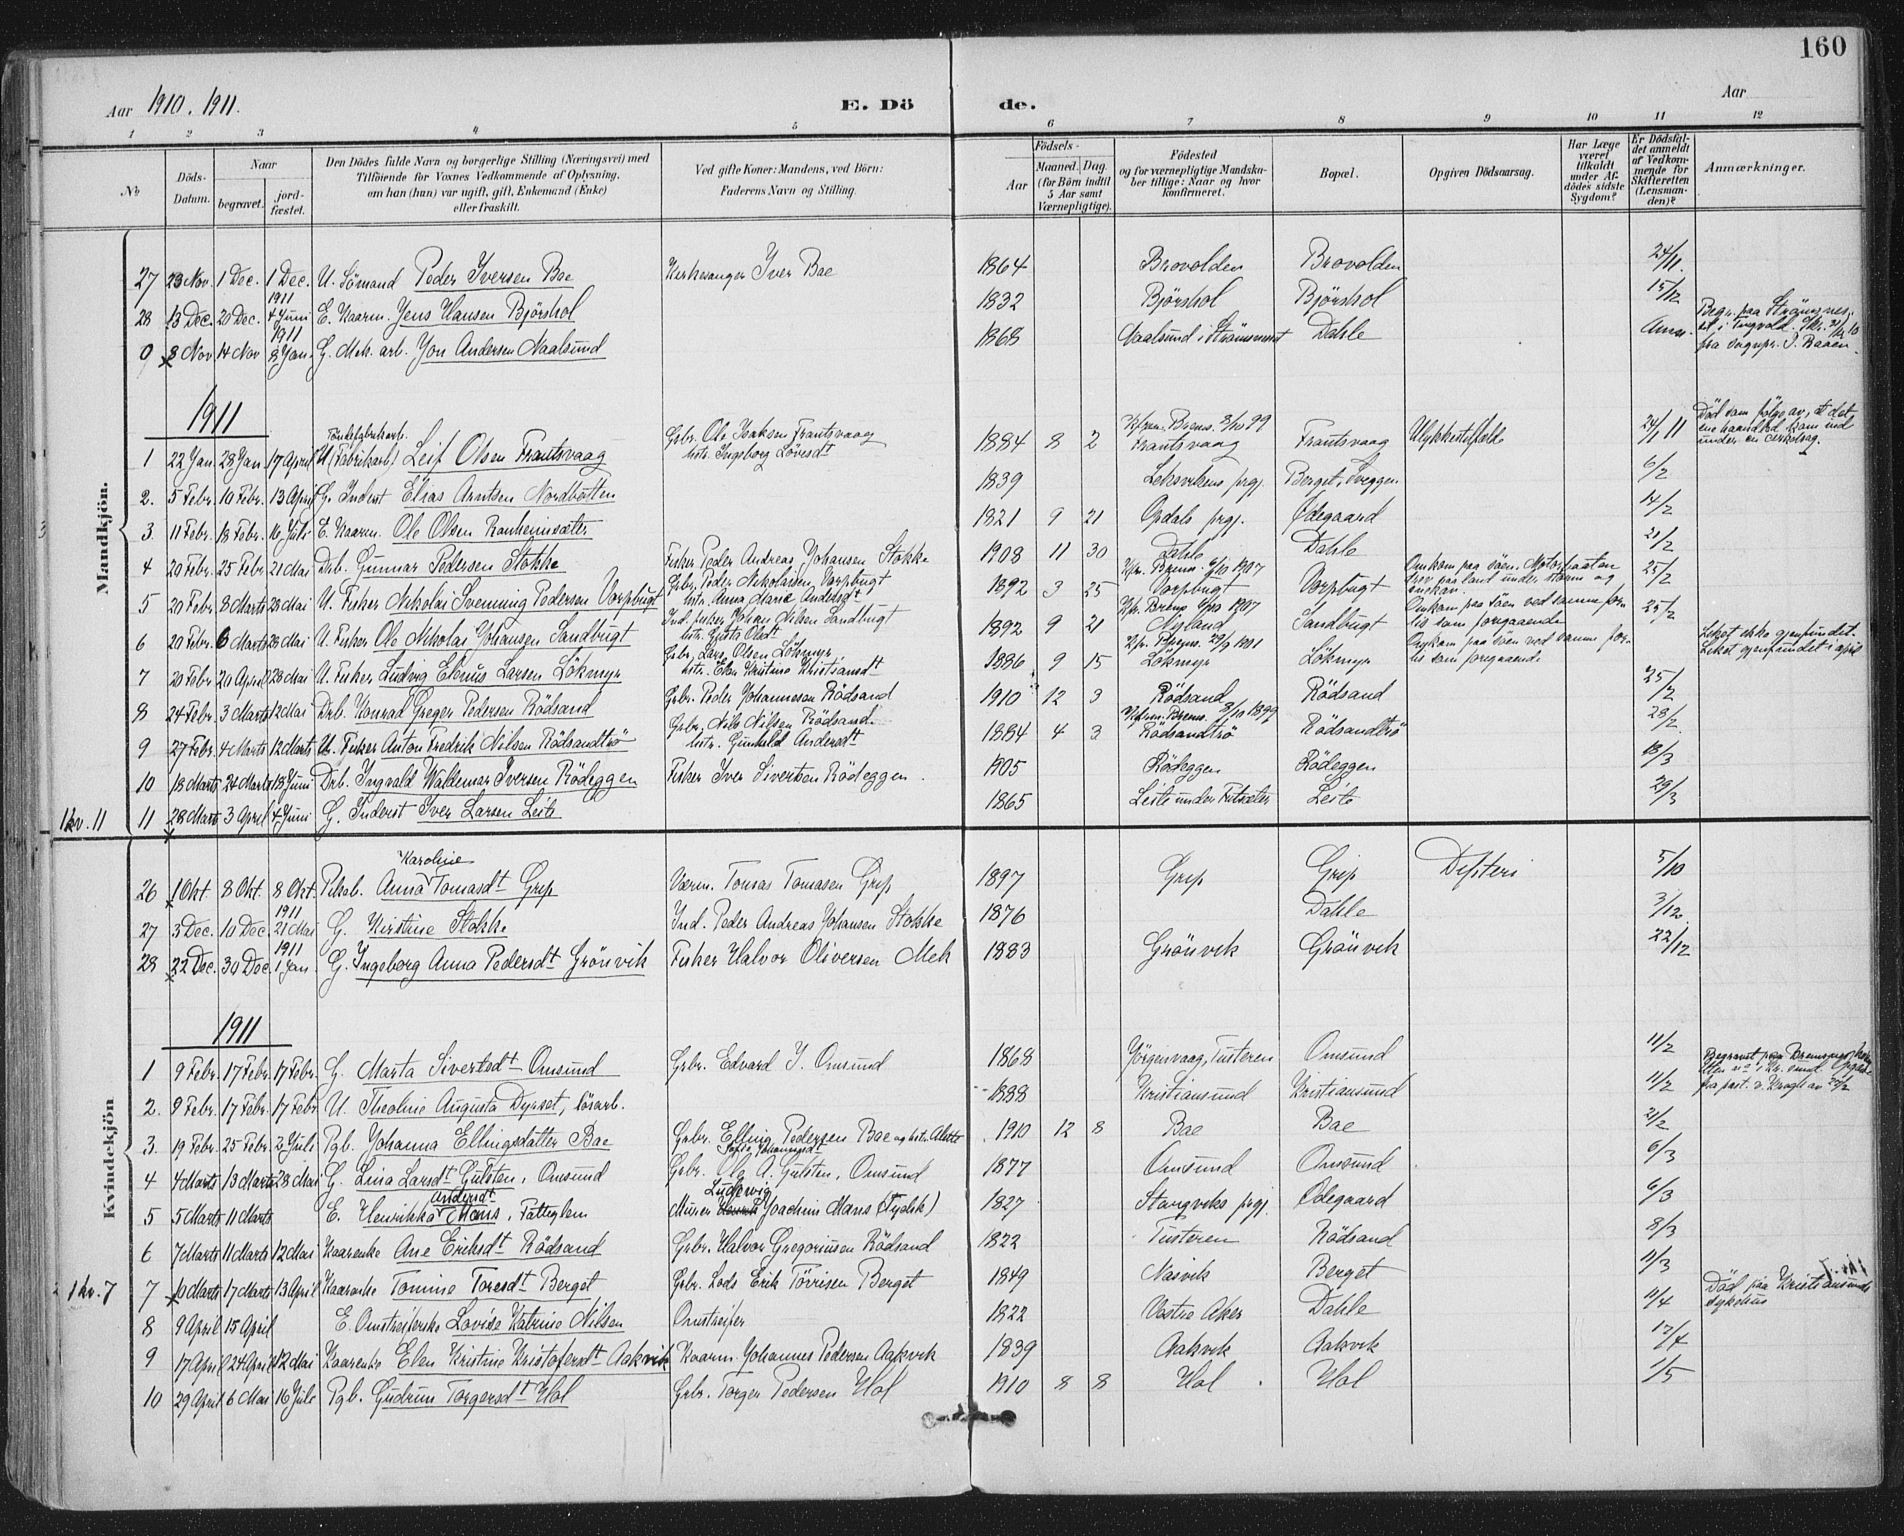 160
Aar 1910. 1911.
E. Dö de.
Aar
1 2 3 4 5 6 7 8 9 10 11 12
No
Döds-Datum.
Naar
begravet.
jord-fæstet.
Den Dödes fulde Navn og borgerlige Stilling (Næringsvei) med Tilföiende for Voxnes Vedkommende af Oplysning, om han (hun) var ugift, gift, Enkemand (Enke) eller fraskilt.
Ved gifte Koner: Mandens, ved Börn: Faderens Navn og Stilling.
Födsels-
Aar
Maaned. Dag.
(for Börn indtil 5 Aar samt Værnepligtige).
Födested og for værnepligtige Mandskaber tillige: Naar og hvor konfirmeret.
Bopæl.
Opgiven Dödsaarsag.
Har Læge været tilkaldt under Afdödes sidste Sygdom?
Er Dödsfaldet anmeldt af Vedkommende for Skifteretten (Lensmanden)?
Anmærkninger.
Mandkjön.
27 23 Nov. 1 Dec. 1 Dec. U. Sömand Peder Iversen Bae Kirkesanger Iver Bae 1864 Brovolden Brovolden 24/11.
28 13 Dec. 20 Dec. 1911 4 Juni E. Kaarm. Jens Hansen Bjørshol 1832 Bjørshol Bjørshol 15/12
0 8 Nov 14 Nov 1911 8 Jan. G. Mek. arb. Jon Andersen Naalsund 1868 Naalsund i Dahle Begr. paa
1911
1 22 Jan. 28 Jan. 17 April U. (Fabrikarb.) Töndefabrikarb. Leif Olsen Frantsvaag Gbr. Ole Isaksen Frantsvaag hstr. Ingeborg 1884 8 2 Frantsvaag Frantsvaag Ulykkestilfælde 24/1 11 Död som følge av, at det ene haandled kom ind under en cirkelsag.
2. 5 Febr. 10 Febr. 13 April G. Inderst Elias Arntsen Nordbotten 1839 Leksvikens prgj. Berget, 6/2
3. 11 Febr. 18 Febr. 16 Juli E. Kaarm. Ole Olsen 1821 9 21 Opdals prgj. Ødegaard 14/2
4 20 Febr. 25 Febr 21 Mai Drb. Gunnar Pedersen Stokke Fisker Peder Andreas Johansen Stokke 1908 11 30 Dahle Dahle 21/2
5 20 Febr. 8 Marts 28 Mai U. Fisker Nikolai Svenning Pedersen Vorpbugt Gbr. Peder Nikolaisen Vorpbugt hstr. Anna Marie Andersdt 1892 3 25 Vorpbugt Vorpbugt Omkom paa søen. 25/2
6 20 Febr. 6 Marts 28 Mai U. Fisker Ole Nikolai Johansen Sandbugt Ind. fisker Johan Nilsen Sandbugt 1892 9 21 Nyland Sandbugt Omkom paa søen ved samme forlis som foregaaende 25/2
7 20 Febr 20 April 28 Mai U. Fisker Ludvig Elenus Larsen Lökmyr Gbr. Lars Olsen Lökmyr hstr. Elen Kristine Kristiansdt 1886 9 15 Lökmyr Lökmyr Omkom paa søen ved samme forlis som foregaaende Liket ikke gjenfundet. Liket gjenfundet i april
8 24 Febr. 3 Marts 12 Mai Drb. Konrad Greger Pedersen Rödsand Gbr. Peder Johannesen Rödsand 1910 12 3 Rödsand Rödsand 25/2
9 27 Febr. 4 Marts 12 Marts U. Fisker Anton Fredrik Nilsen Rödsandtrö Gbr. Nils Nilsen Rödsand. hstr. Gunhild Andersdt 1884 4 3 Rödsandtrö Rödsandtrö 28/2.
10 18 Marts 24 Marts 18 Juni Drb. Ingvald Waldemar Iversen Rödeggen Fisker Iver Sivertsen Rödeggen. 1905 Rödeggen Rödeggen 18/3
11 28 Marts 3 April 4 Juni G. Inderst Iver Larsen Leite 1865 Leite under Leite 29/3
1 kv. 11
Kvindekjön
26 1 Okt 8 Okt. 8 Okt. Pikeb. Anna Karoline Tomasdt Grip Værm. Tomas Tomasen Grip 1897 Grip Grip Difteri 5/10
27 3 Dec. 10 Dec. 1911 21 Mai G. Kirstine Stokke Ind. Peder Andreas Johansen Stokke 1876 Dahle 3/12
28 22 Dec. 30 Dec. 1911 1 Jan G. Ingeborg Anna Pedersdt Grönvik Fisker Halvor Oliversen Mek 1883 Grönvik Grönvik 22/12
1911
1 9 Febr. 17 Febr. 17 Febr. G. Marta Sivertsdt Omsund Gbr. Edvard I. Omsund 1868 Jörgenvaag, Tusteren Omsund 11/2
2. 9 Febr. 17 Febr. 17 Febr U. Theoline Augusta Dyrset, lösarb. 1888 Kristiansund Kristiansund 11/2
3. 19 Febr. 25 Febr. 2 Juli Pgb. Johanna Ellingsdatter Bae Gbr. Elling Pedersen Bae og hstr. 1910 12 8 Bae Bae 21/2
4 4 Marts 13 Marts 28 Mai G. Lina Larsdt Gulsten, Omsund Gbr. Ole A. Gulsten, Omsund 1877 Omsund Omsund 6/3
5 5 Marts 11 Marts E. Henrikka Andersdt Mans, Fattiglem Murer Ludevig Joachim Mans (Tydsk) 1827 Stangviks prgj. Ödegaard 6/3
6 7 Marts 11 Marts 12 Mai Kaarenke Ane Eriksdt Rödsand Gbr. Halvor Gregoriusen Rödsand 1822 Tusteren Rödsand 8/3
7 10 Marts 17 Marts 13 April Kaarenke Tomine Toresdt Berget Gbr. Lods Erik Törrisen Berget 1849 Nasvik Berget 11/3
8 9 April 15 April E. Omstreiferske Lovise Katrine Nilsen Omstreifer 1822 Vestre Aker Dahle 11/4 Död paa Kristiansunds sykehus
9 17 April 24 April 12 Mai Kaarenke Elen Kristine Kristofersdt Aakvik Kaarm. Johannes Pedersen Aakvik 1839 Aakvik Aakvik 17/4
10 29 April 6 Mai 16 Juli Pgb. Gudrun Torgersdt Hol Gbr. Torger Pedersen Hol 1910 8 8 Hol Hol 1/5
1 kv. 7